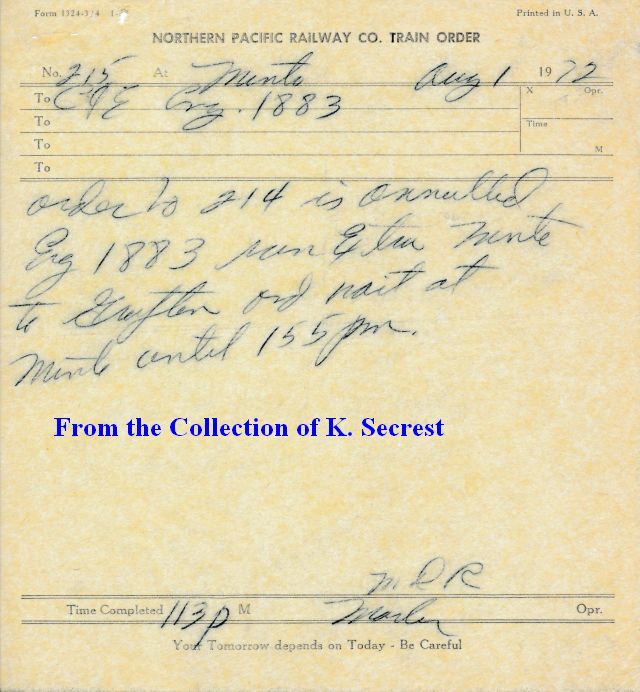 Form 1324-3/4 1-
Printed in U. S. A.
NORTHERN PACIFIC RAILWAY CO. TRAIN ORDER
No. 215 At Minto Aug 1 1972
To C&E Eng. 1883 X Opr.
To
Time
To M
To
order No 214 is annulled
Eng 1883 run Extra Minto
to Grafton and wait at
Minto until 155 pm.
From the Collection of K. Secrest
M D R
Time Completed 113p M Opr.
Your Tomorrow depends on Today - Be Careful